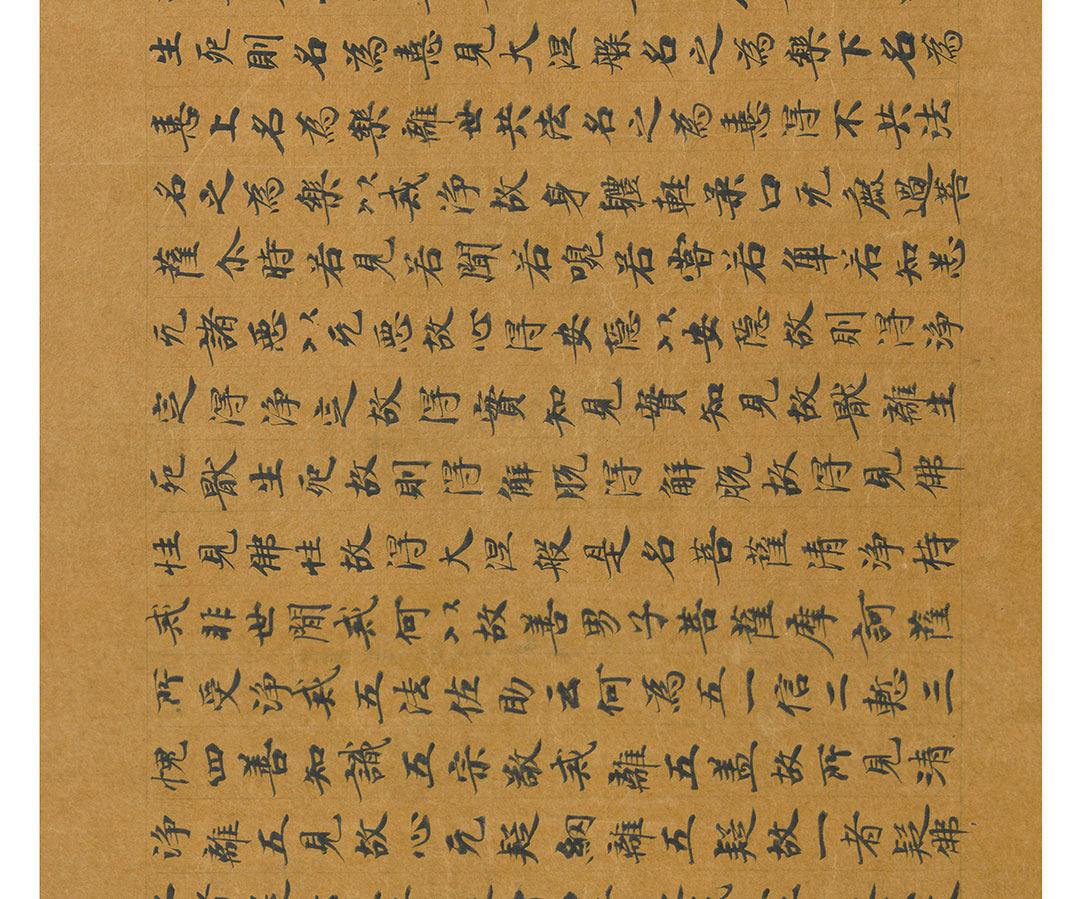 生死則名為惠見大涅槃名之為樂下名為
惠上名為樂離世共法名之為惠得不共法
名之為樂以戒淨故身體軽柔口无麁過菩
薩尒時若見若聞若嗅若嘗若 若知悉
无諸惡以无惡故心得安隱以安隱故則得淨
定得淨定故得實知見實知見故猒離生
死猒生死故則得解脫得解脫故得見佛
性見佛性故得大涅般是名菩薩清淨持
戒非世間戒何以故善男子菩薩摩訶薩
所受淨戒五法佐助云何為五一信二慙三
愧四善知識五宗敬戒離五盖故所見清
淨離五見故心无疑網離五疑故一者疑佛